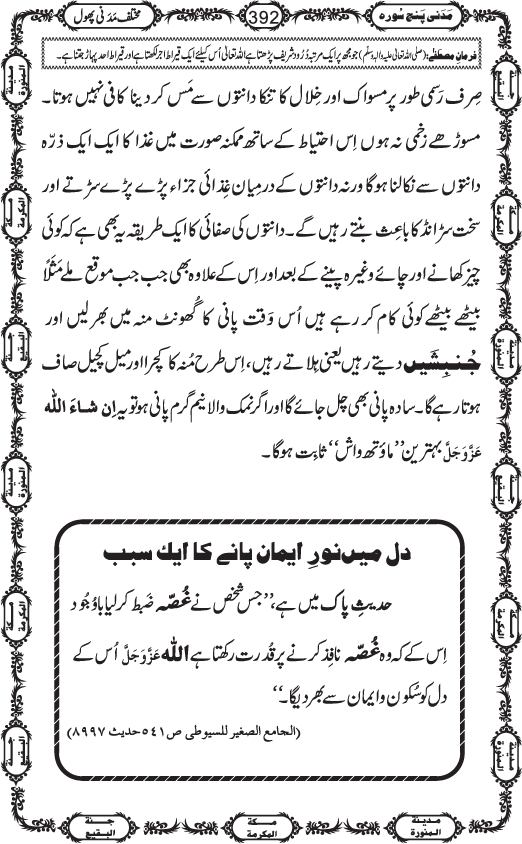 مَدَنی پنج سُورہ
392
مختلف مَدَنی پھول
فرمانِ مصطفٰے: (صلی اللہ تعالیٰ علیہ والہ وسلم) جو مجھ پر ایک مرتبہ دُرُود شریف پڑھتا ہے اللہ تعالیٰ اُس کیلئے ایک قیراط اجر لکھتا ہے اور قیراط احد پہاڑ جتنا ہے۔
صِرف رَسمی طور پر مسواک اور خِلال کا تنکا دانتوں سے مَس کر دینا کافی نہیں ہوتا۔
مسوڑھے زخمی نہ ہوں اِس احتیاط کے ساتھ ممکنہ صورت میں غذا کا ایک ایک ذرّہ
دانتوں سے نکالنا ہوگا ورنہ دانتوں کے درمیان غِذائی اجزاء پڑے پڑے سڑتے اور
سخت سڑانڈ کا باعِث بنتے رہیں گے۔ دانتوں کی صفائی کا ایک طریقہ یہ بھی ہے کہ کوئی
چیز کھانے اور چائے وغیرہ پینے کے بعد اور اِس کے علاوہ بھی جب جب موقع ملے مَثَلاً
بیٹھے بیٹھے کوئی کام کر رہے ہیں اُس وَقت پانی کا گُھونٹ منہ میں بھر لیں اور
جُنبِشَیں دیتے رہیں یعنی ہِلاتے رہیں، اِس طرح مُنہ کا کچرا اور میل کچیل صاف
ہوتا رہے گا۔ سادہ پانی بھی چل جائے گا اور اگر نمک والا نیم گرم پانی ہو تو یہ اِن شاءَ اللہ
عَزَّوَجَلَّ بہترین ’’ماؤتھ واش‘‘ ثابت ہوگا۔
دل میں نورِ ایمان پانے کا ایک سبب
حدیثِ پاک میں ہے، ’’جس شخص نے غُصّہ ضَبط کر لیا باوُجُود
اِس کے کہ وہ غُصّہ نافِذ کرنے پر قُدرت رکھتا ہے اللہ عَزَّوَجَلَّ اُس کے
دل کو سُکون و ایمان سے بھر دیگا۔‘‘
(الجامع الصغیر للسیوطی ص ٥٤١ حدیث ٨٩٩٧)
جنۃ البقیع
مکۃ المکرمۃ
مدینۃ المنورۃ